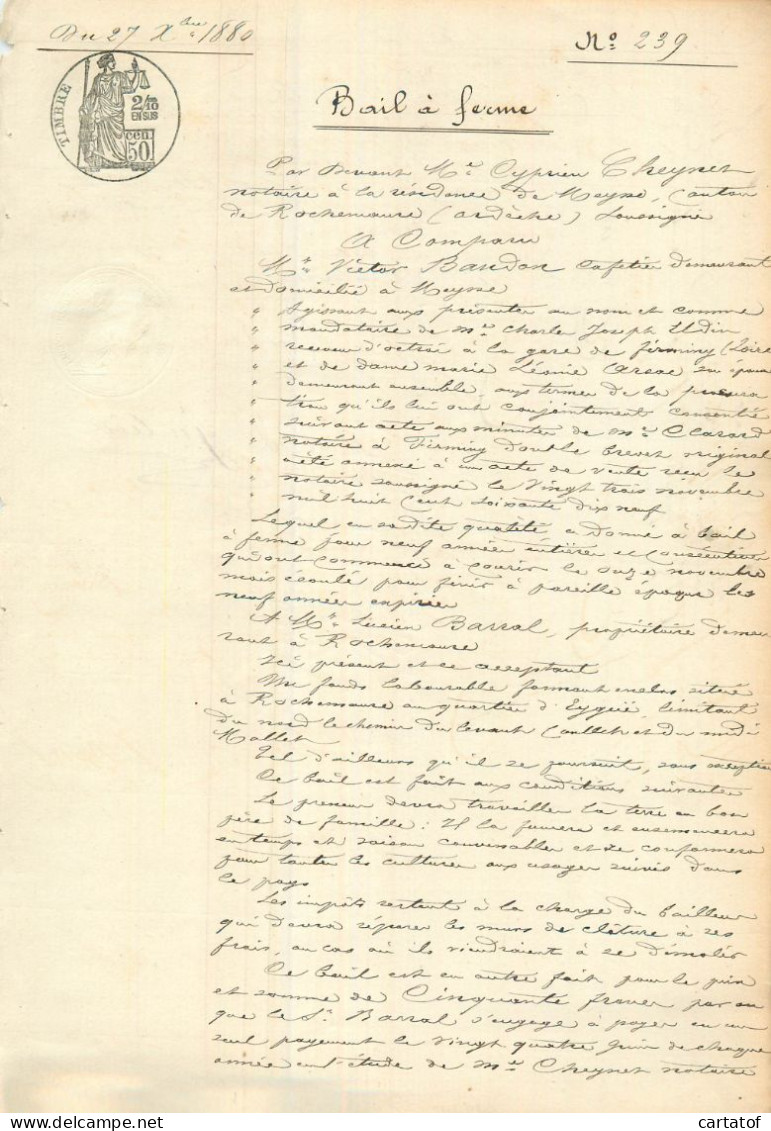 Du 27 Xbre 1880
No 239
TIMBRE
2/10
EN SUS
50 cen
Bail à ferme
Par Devant Me Cyprien Cheynet
notaire à la résidence de Meysse, Canton
de Rochemaure (ardèche) Soussigné
A Comparu
Mr Victor Baudon Cafetier demeurant
et domicilié à Meysse
" Agissant aux présentes au nom et comme
" mandataire de mr Charle Joseph Udin
" receveur d'octroi à la gare de firminy (Loire
" et de dame marie Léonie Arsac son épouse
" demeurant ensemble, aux termes de la procura
" tion qu'ils lui ont conjointement consentie
" suivant acte aux minutes de me Clavard
" notaire à Firminy double brevet original
" a été annexé à un acte de vente reçu le
" notaire soussigné le Vingt trois novembre
" mil huit Cent soixante dix neuf
Lequel en sadite qualité a Donné à bail
à ferme pour neuf années entières et Consécutives
qui ont commencé à courir le onze novembre
mois écoulé pour finir à pareille époque les
neuf années expirées
A Mr Lucien Barral, propriétaire demeu
rant à Rochemaure
Ici présent et ce acceptant
Un fonds labourable formant enclos situé
à Rochemaure au quartier d'Eyguié, limitant
du nord le chemin du levant Coullet et du midi
Mallet
Tel d'ailleurs qu'il se poursuit, sans exception
Ce bail est fait aux conditions suivantes
Le preneur devra travailler la terre en bon
père de famille: Il la fumera et ensemencera
en temps et saison convenables et se conformera
pour toutes les cultures aux usages suivis dans
le pays
Les impôts restent à la charge du bailleur
qui devra réparer les murs de clôture à ses
frais, au cas où ils viendraient à se démolir
Ce bail est en outre fait pour le prix
et somme de Cinquante francs par an
que le Sr Barral s'engage à payer en un
seul payement le vingt quatre Juin de chaque
année en l'étude de me Cheynet notaire
cartatof